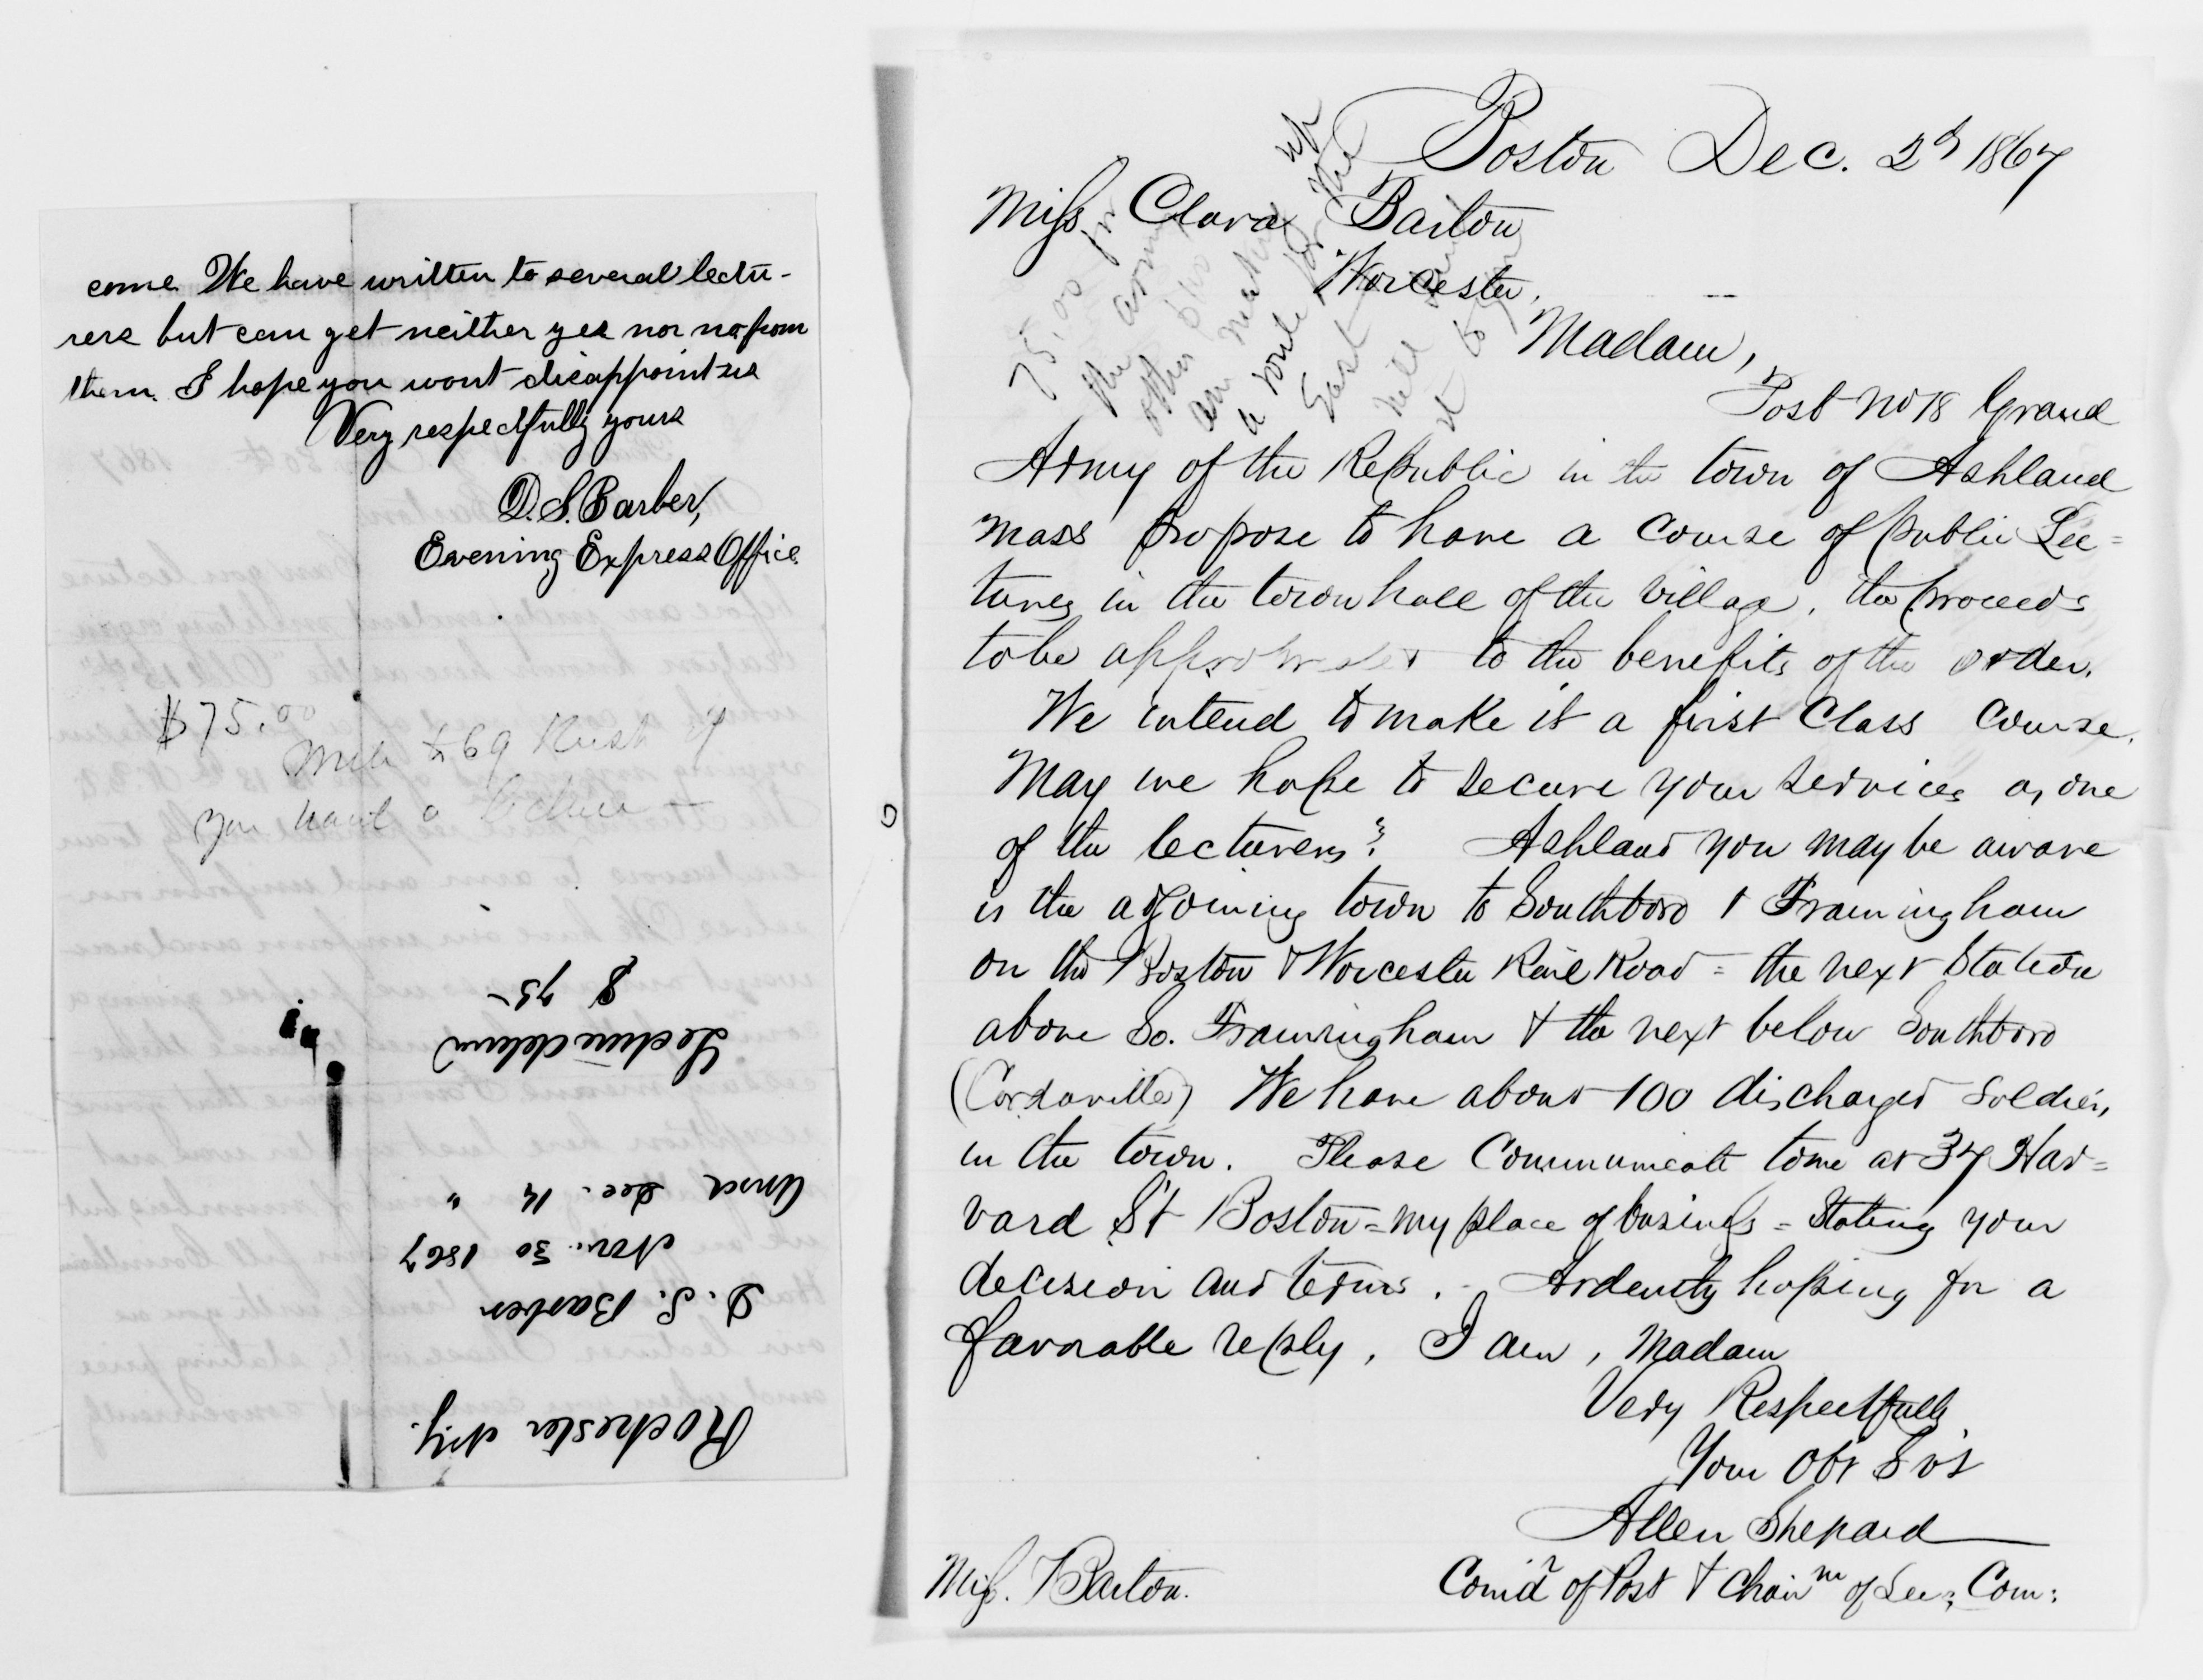 come We have written to several lectu-
rers but can get neither yes nor no from
them. I hope you wont disappoint us
Very respectfully yours
D. S. Barber,
Evening Express Office
$75.00
you want a lecture
Rochester N.Y.
D. S. Barber
Nov. 30 1867
Ansd Dec. 14 "
$ 75-
Boston Dec. 2d 1867
Miss Clara Barton
Worcester,
Madam,
Post No 18 Grand
Army of the Republic in the town of Ashland
Mass propose to have a course of public Lec=
tures in the town hall of the village, the proceeds
to be to the benefits of the order.
We intend to make it a first Class Course.
May we hope to secure your services as one
of the lecturers? Ashland you may be aware
is the adjoining town to Southboro & Framingham
on the Boston & Worcester Rail Road = the next Station
above So. Framingham & the next below Southboro
(Cordaville) We have about 100 discharged soldiers
in the town. Please Communicate to me at 37 Har=
vard St Boston = my place of business = Stating your
decision and terms. - Ardently hoping for a
favorable reply, I am, Madam
Very Respectfully
Your Obt Svt
Allen Shepard
Com'dr of Post & Chairm of Lec: Com:
Miss. Barton.
75.00 for
the
other
an
a route for the
East